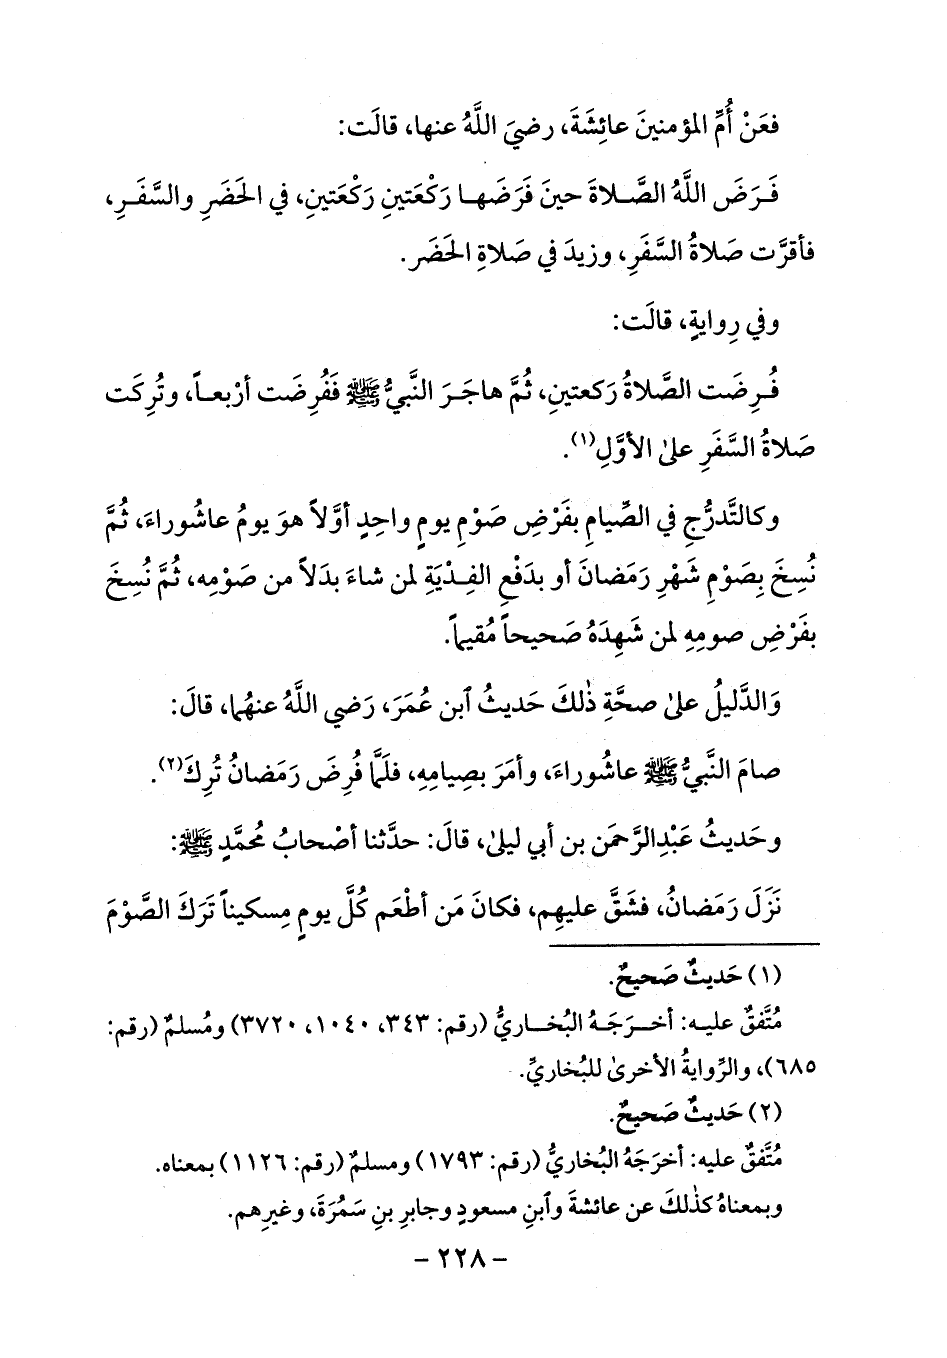 فعَنْ أُمِّ المؤمنينَ عائِشَةَ، رضيَ اللَّهُ عنها، قالَت:
فَـرَضَ اللَّهُ الصَّـلاةَ حينَ فَرَضَهـا رَكْعَتينِ رَكْعَتينِ، في الحَضَرِ والسَّفَـرِ،
فأقرَّت صَلاةُ السَّفَرِ، وزيدَ في صَلاةِ الحَضَر.
وفي رِوايةٍ، قالَت:
فُـرِضَت الصَّلاةُ رَكعتينِ، ثُمَّ هاجَـرَ النَّبيُّ ﷺ فَفُرِضَت أرْبعـاً، وتُرِكَت
صَلاةُ السَّفَرِ علىٰ الأوَّلِ(١).
وكالتَّدرُّجِ في الصِّيامِ بفَرْضِ صَوْمِ يومٍ واحِدٍ أوَّلاً هوَ يومُ عاشُوراءَ، ثُمَّ
نُسِخَ بِصَوْمِ شَهْرِ رَمَضانَ أو بدَفْعِ الفِـدْيَةِ لمن شاءَ بدَلاً من صَوْمِه، ثُمَّ نُسِخَ
بفَرْضِ صومِهِ لمن شَهِدَهُ صَحيحاً مُقيماً.
وَالدَّليلُ علىٰ صحَّةِ ذٰلكَ حَديثُ ٱبن عُمَرَ، رَضي اللَّهُ عنهُما، قالَ:
صامَ النَّبيُّ ﷺ عاشُوراءَ، وأمَرَ بصِيامِهِ، فلَمَّا فُرِضَ رَمَضانُ تُرِكَ(٢).
وحَديثُ عَبْدِالرَّحمَن بن أبي ليلىٰ، قالَ: حدَّثنا أصْحابُ مُحمَّدٍ ﷺ:
نَزَلَ رَمَضانُ، فشَقَّ عليهِم، فكانَ مَن أطْعَم كُلَّ يومٍ مِسكيناً تَرَكَ الصَّوْمَ
(١) حَديثٌ صَحيحٌ.
مُتَّفقٌ عليـه: أخـرَجَـهُ البُخـاريُّ (رقم: ٣٤٣، ١٠٤٠، ٣٧٢٠) ومُسلمٌ (رقم:
٦٨٥)، والرِّوايةُ الأخرىٰ للبُخاريِّ.
(٢) حَديثٌ صَحيحٌ.
مُتَّفقٌ عليه: أخرَجَهُ البُخاريُّ (رقم: ١٧٩٣) ومسلمٌ (رقم: ١١٢٦) بمعناه.
وبمعناهُ كذٰلكَ عن عائشةَ وٱبنِ مسعودٍ وجابرِ بنِ سَمُرَةَ، وغيرِهم.
- ٢٢٨ -